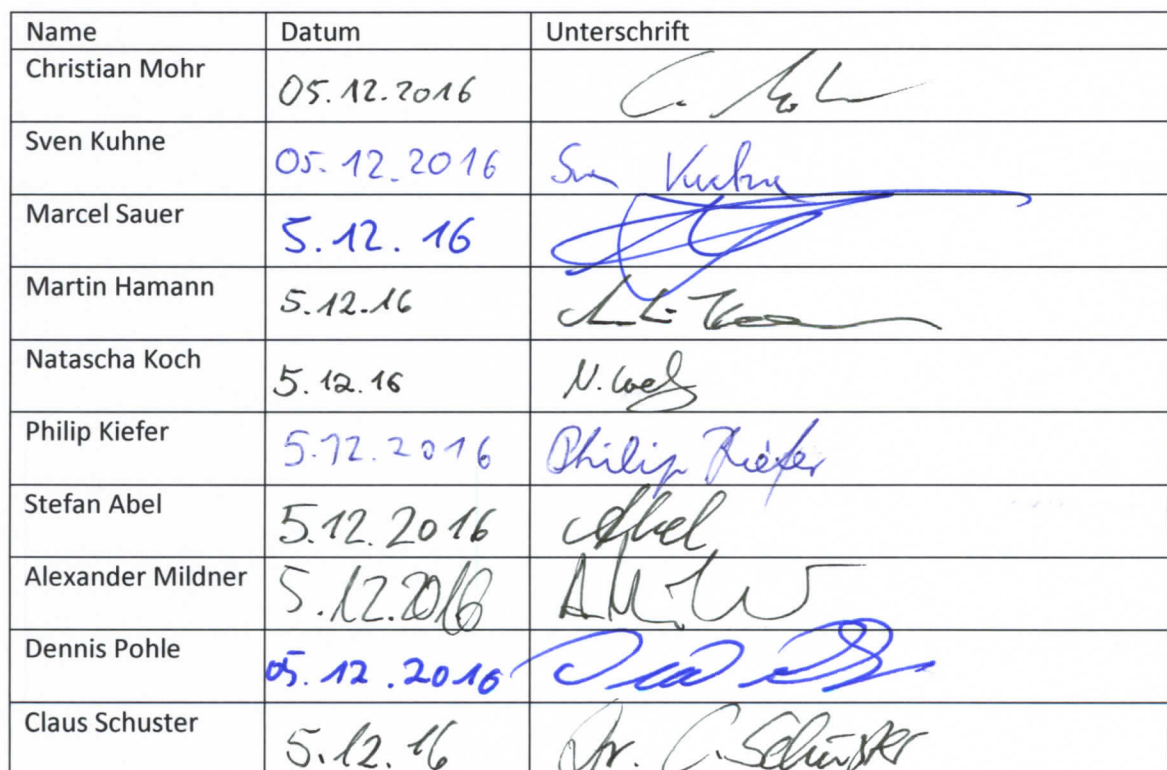 Name Datum Unterschrift
Christian Mohr 05.12.2016 C. Mohr
Sven Kuhne 05.12.2016 Sven Kuhne
Marcel Sauer 5.12.16
Martin Hamann 5.12.16
Natascha Koch 5.12.16 N. Koch
Philip Kiefer 5.12.2016 Philip Kiefer
Stefan Abel 5.12.2016 Abel
Alexander Mildner 5.12.2016
Dennis Pohle 05.12.2016
Claus Schuster 5.12.16 Dr. C. Schuster